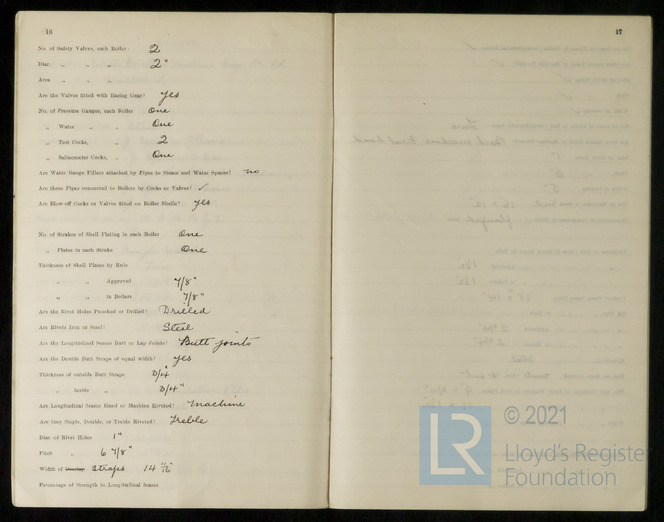 16
No. of Safety Valves, each Boiler 2
Diar. „ „ „ 2"
Area „ „ „
Are the Valves fitted with Easing Gear? Yes
No. of Pressure Gauges, each Boiler One
„ Water „ „ One
„ Test Cocks, „ 2
„ Salinometer Cocks, „ One
Are Water Gauge Pillars attached by Pipes to Steam and Water Spaces? no
Are these Pipes connected to Boilers by Cocks or Valves? ✓
Are Blow-off Cocks or Valves fitted on Boiler Shells? Yes
No. of Strakes of Shell Plating in each Boiler One
„ Plates in each Strake One
Thickness of Shell Plates by Rule
„ „ Approved 7/8"
„ „ in Boilers 7/8"
Are the Rivet Holes Punched or Drilled? Drilled
Are Rivets Iron or Steel? Steel
Are the Longitudinal Seams Butt or Lap Joints? Butt joints
Are the Double Butt Straps of equal width? Yes
Thickness of outside Butt Straps 3/4"
„ inside „ 3/4"
Are Longitudinal Seams Hand or Machine Riveted? Machine
Are they Single, Double, or Treble Riveted? Treble
Diar. of Rivet Holes 1"
Pitch „ 6 7/8"
Width of Straps 14
Percentage of Strength in Longitudinal Seams
17
© 2021
LR
Lloyd's Register
Foundation